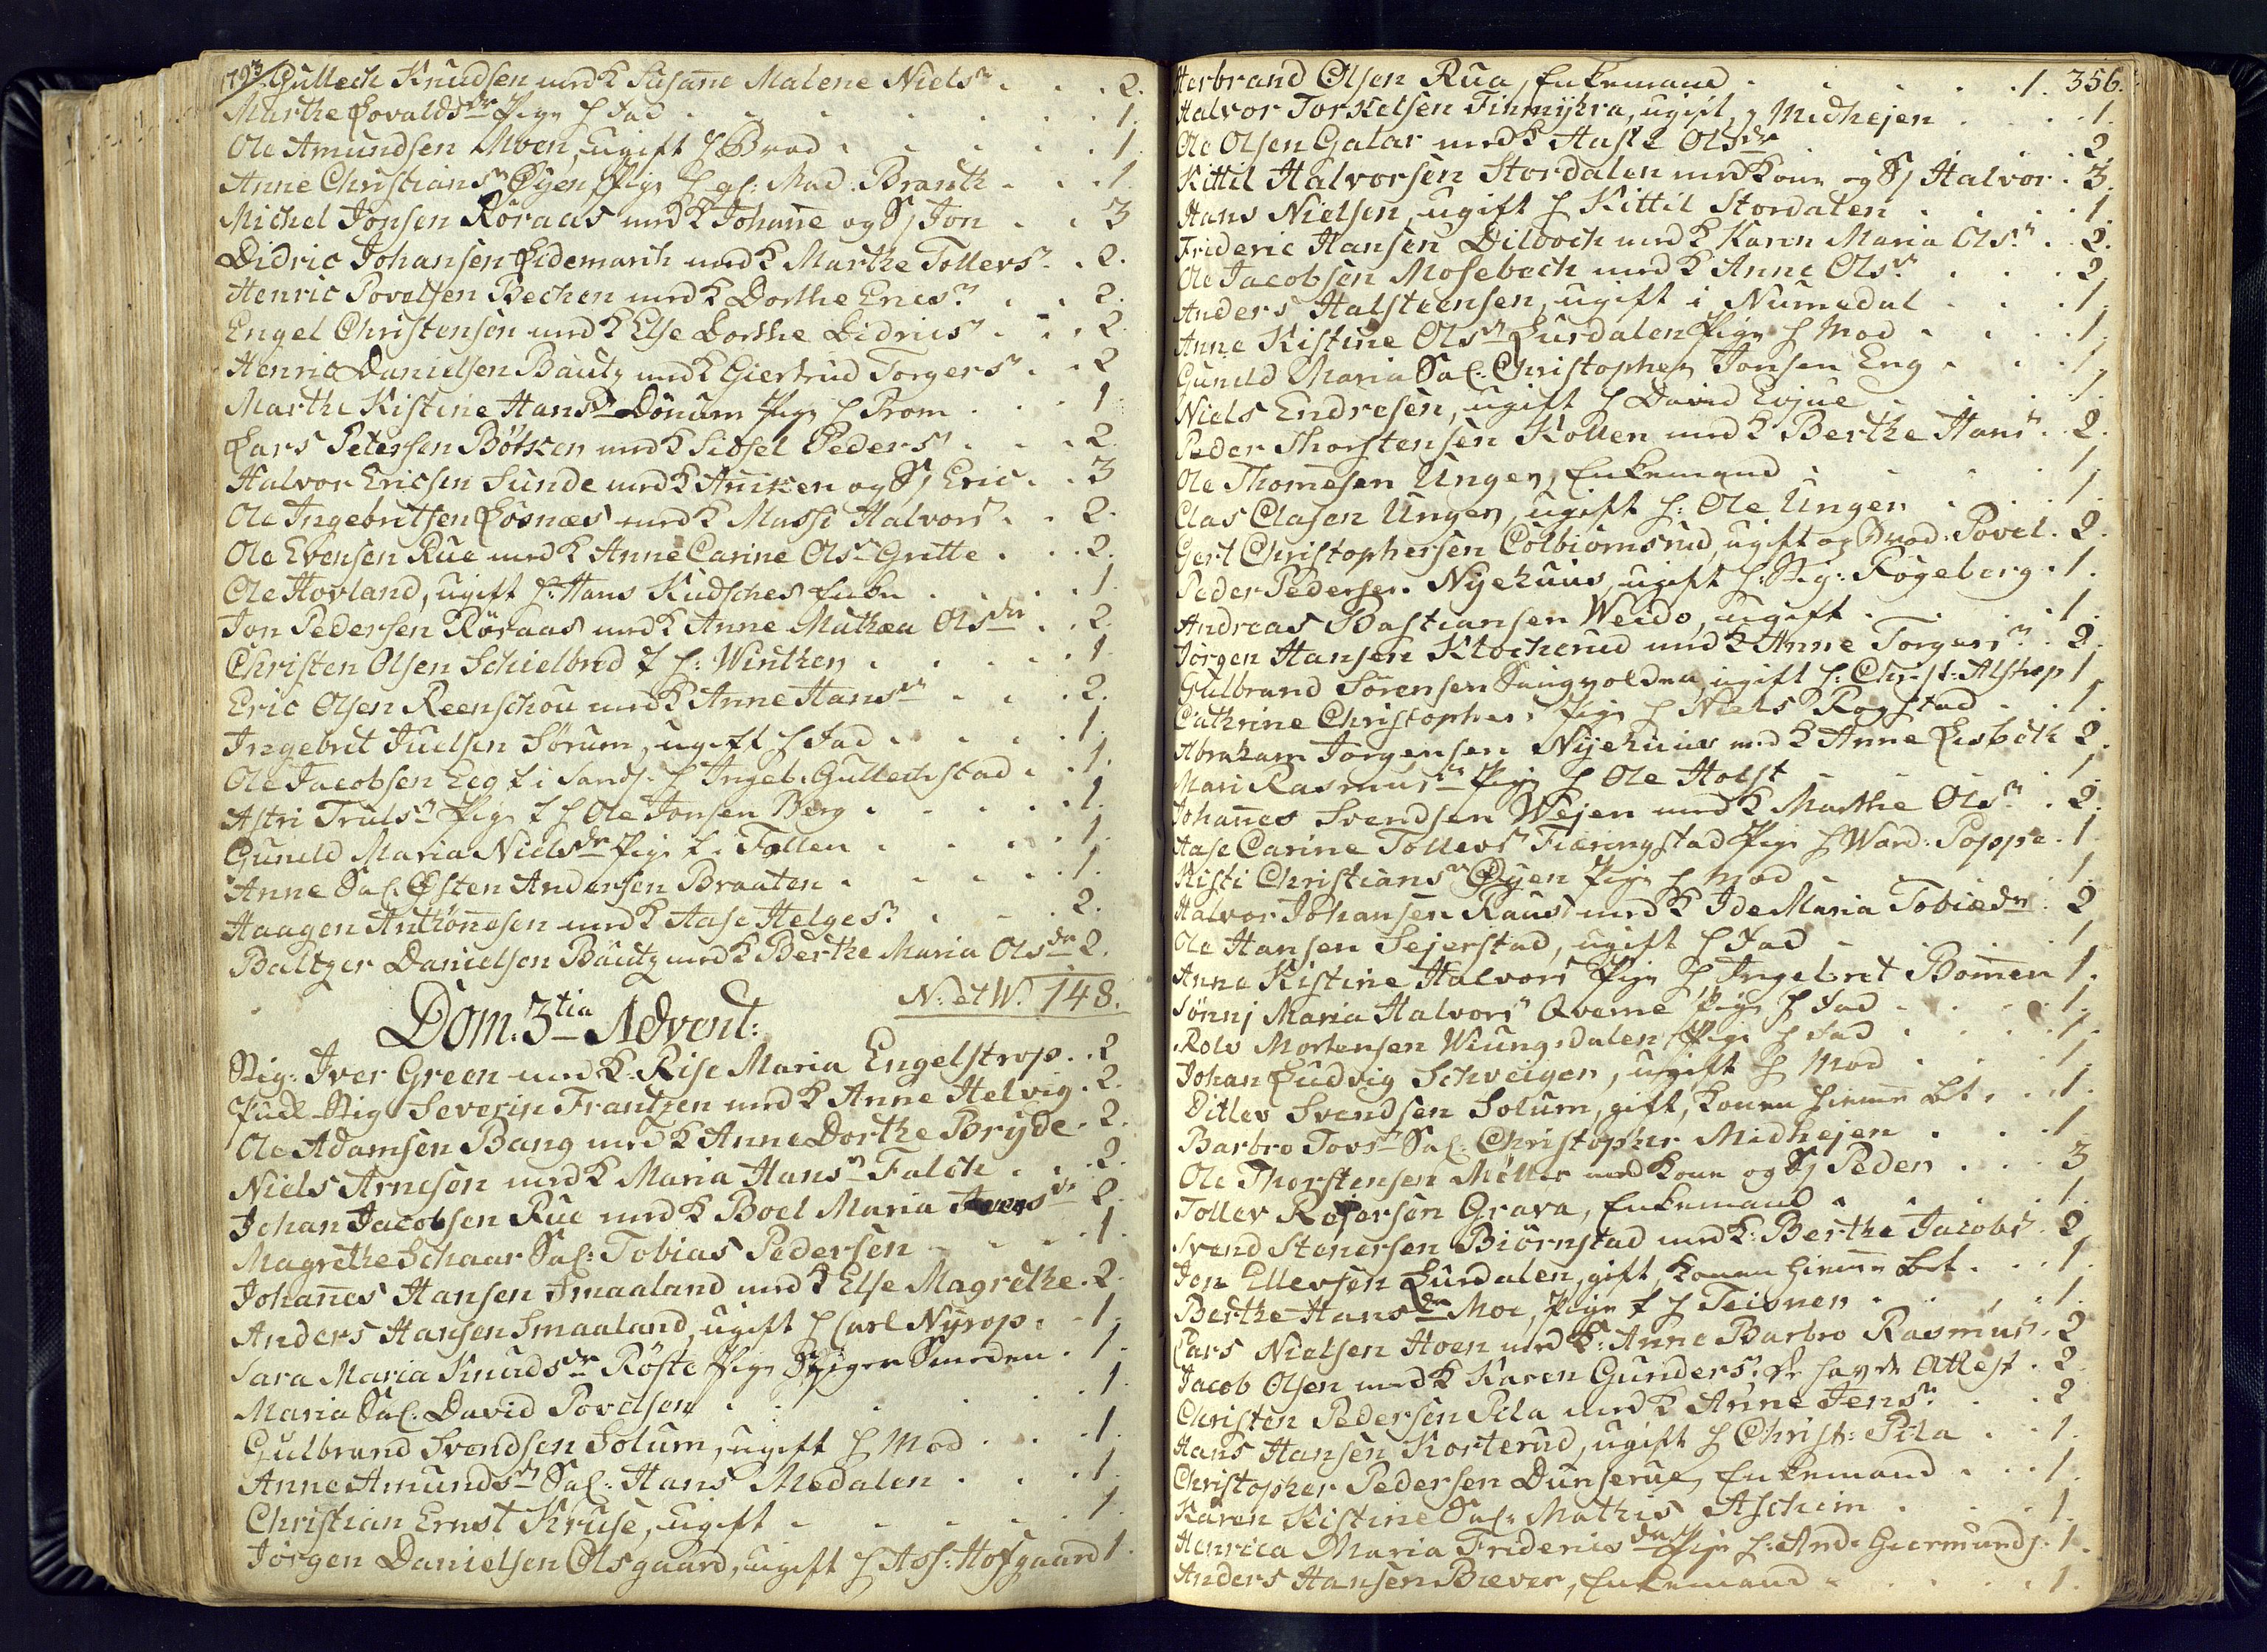 1793 Gullech Knudsen med K Susane Malene Niels . . . 2.
Marthe Lovalds dr Pige H Fad . . . 1.
Ole Amundsen Moen, ugift H Brod . . . 1.
Anne Christians Øyen Pige H gl: Mad. Brandt . . . 1.
Michel Jonsen Röraas med K Johane og S Jon . . 3
Didric Johansen Lidemarck med K Marthe Tollers . . 2.
Henric Povelsen Bechen med K Dorthe Erics . . 2.
Engel Christensen med K Else Dorthe Didrics . . 2.
Henric Danielsen Bautz med K Giertrud Torgers . . 2
Marthe Kistine Hans Dönum Pige H Prom . . . 1.
Lars Petersen Bötker med K Sidsel Peders . . . 2.
Halvor Ericsen Sunde med K Aniken og S Eric . . 3
Ole Ingebritsen Losnæs med K Massi Halvors . . 2.
Ole Evensen Rue med K Anne Carine Ols Gritte . . . 2.
Ole Hovland, ugift H: Hans Kudsches Enke . . . 1.
Jon Pedersen Röraas med K Anne Mathea Ols dr . . 2.
Christen Olsen Schielbred f H: Winther . . . 1.
Eric Olsen Reenschou med K Anne Hans . . . 2.
Ingebret Juelsen Sørum, ugift H Fad . . . 1.
Ole Jacobsen Eeg f i Sands. H Ingeb. Gullechstad . . 1.
Astri Truls Pige f H Ole Jonsen Berg . . . 1.
Guneld Maria Niels dr Pige f. Follen . . . 1.
Anne Sal. Østen Andersen Braaten . . . 1.
Haagen Anthonesen med K Aase Helges . . . 2.
Baltzer Danielsen Bautz med K Berthe Maria Ols dr 2.
N: et W. 148.
Dom: 3tia Advent:
Stig: Iver Green med K. Rise Maria Engelstrop . . 2
Stig Severin Frantzen med K Anne Helvig . 2.
Ole Adamsen Bang med K Anne Dorthe Bryde . 2.
Niels Arnesen med K Maria Hans Falch . . . 2.
Johan Jacobsen Rue med K Boel Maria 2.
Magrethe Schaar Sal: Tobias Pedersen . . . 1.
Johanes Hansen Smaaland med K Else Magrethe . 2.
Anders Hansen Smaaland, ugift H Carl Nyrop . . 1.
Sara Maria Knuds dr Röste Pige Smeden . 1.
Maria Sal. David Povelsen . . . 1.
Gulbrand Svendsen Solum, ugift H Mod . . . 1.
Anne Amunds Sal. Hans Medalen . . . 1.
Christian Ernst Kruse, ugift . . . 1.
Jörgen Danielsen Olsgaard, ugift H Ass: Hofgaard 1.
356.
Herbrand Olsen Rua, Enkemand . . . 1.
Halvor Torkelsen Finmyhra, ugift, Midhejen . . . 1.
Ole Olsen Galar med K Hasle Ols dr . . . 2.
Kittil Halvorsen Stordalen med Kone og S Halvor . 3.
Hans Nielsen, ugift H Kittil Stordalen . . . 1.
Frideric Hansen Dilboch med K Karen Maria Ols . . 2.
Ole Jacobsen Mosebech med K Anne Ols . . . 2.
Anders Halsteensen, ugift i Numedal . . . 1.
Anne Kistine Ols Lurdalen Pige H Mod . . . 1.
Guneld Maria Sal. Christopher Jonsen Eng . . . 1.
Niels Endresen, ugift H David Evjue . . . 1.
Peder Thorstensen Kollen med K Berthe Hans . 2.
Ole Thomesen Unger, Enkemand . . . 1.
Clas Clasen Unger, ugift H: Ole Unger . . . 1.
Gert Christophersen Colbiornsrud, ugift og Brod. Povel . 2.
Peder Pedersen Nyehuus, ugift H: Stig: Rogeberg . 1.
Andreas Bastiansen Weido, ugift . . . 1.
Jörgen Hansen Klocherud med K Anne Torgers . 2.
Gulbrand Sörensen Saugvolden, ugift H: Christ: Alstrop 1.
Cathrine Christophers Pige H Niels Rogstad . . 1.
Abraham Jorgensen Nyehuus med K Anne Lisbeth 2.
Mari Rasmus Pige H Ole Holst . . . 1.
Johanes Svendsen Wejen med K Marthe Ols . . 2.
Aase Carine Tollevs Fieringstad Pige H Ward. Poppe . 1.
Kisti Christians Øyen Pige H Mod . . . 1.
Halvor Johansen Raus med K Ide Maria Tobiæ dr . 2
Ole Hansen Sejerstad, ugift H Fad . . . 1.
Anne Kistine Halvors Pige H Ingebret Bomen 1.
Sönnj Maria Halvors Qverne Pige H Fad . . . 1.
Rolv Mortensen Wiungsdalen Pige H Fad . . . 1.
Johan Ludvig Schveiger, ugift H Mod . . . 1.
Ditlev Svendsen Solum, gift, konen hiemme bet. . . 1.
Barbro Tovs Sal. Christopher Midhejen . . . 1.
Ole Thorstensen Möller med Kone og S Peder . . . 3
Tollev Rosersen Grava, Enkemand . . . 1.
Svend Stenersen Biörnstad med K. Berthe Jacobs . 2
Jon Ellevsen Lurdalen, gift, konen hiemme bet . . . 1.
Berthe Hans dr Moe, Pige f H Teisner . . . 1.
Lars Nielsen Hoen med K. Anne Barbro Rasmus . 2
Jacob Olsen med K Karen Gunders, Attest . 2.
Christen Pedersen Pila med K Anne Jens . . . 2
Hans Hansen Korterud, ugift H Christ: Pila . . 1.
Christopher Pedersen Dunserue, Enkemand . . . 1.
Karen Kistine Sal. Mathis Ascheim . . . 1.
Henrica Maria Friderics dr Pige H: And. Giermunds. 1.
Anders Hansen Bæver, Enkemand . . . 1.